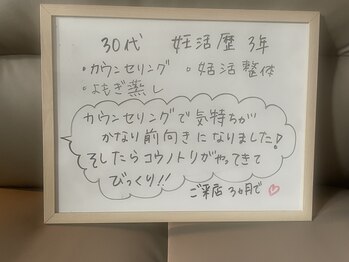 30代 妊活歴 3年
・カウンセリング ・妊活整体
・よもぎ蒸し
カウンセリングで気持ちが
かなり前向きになりました!
そしたらコウノトリがやってきて
びっくり!!
ご来店 3ヵ月で♡